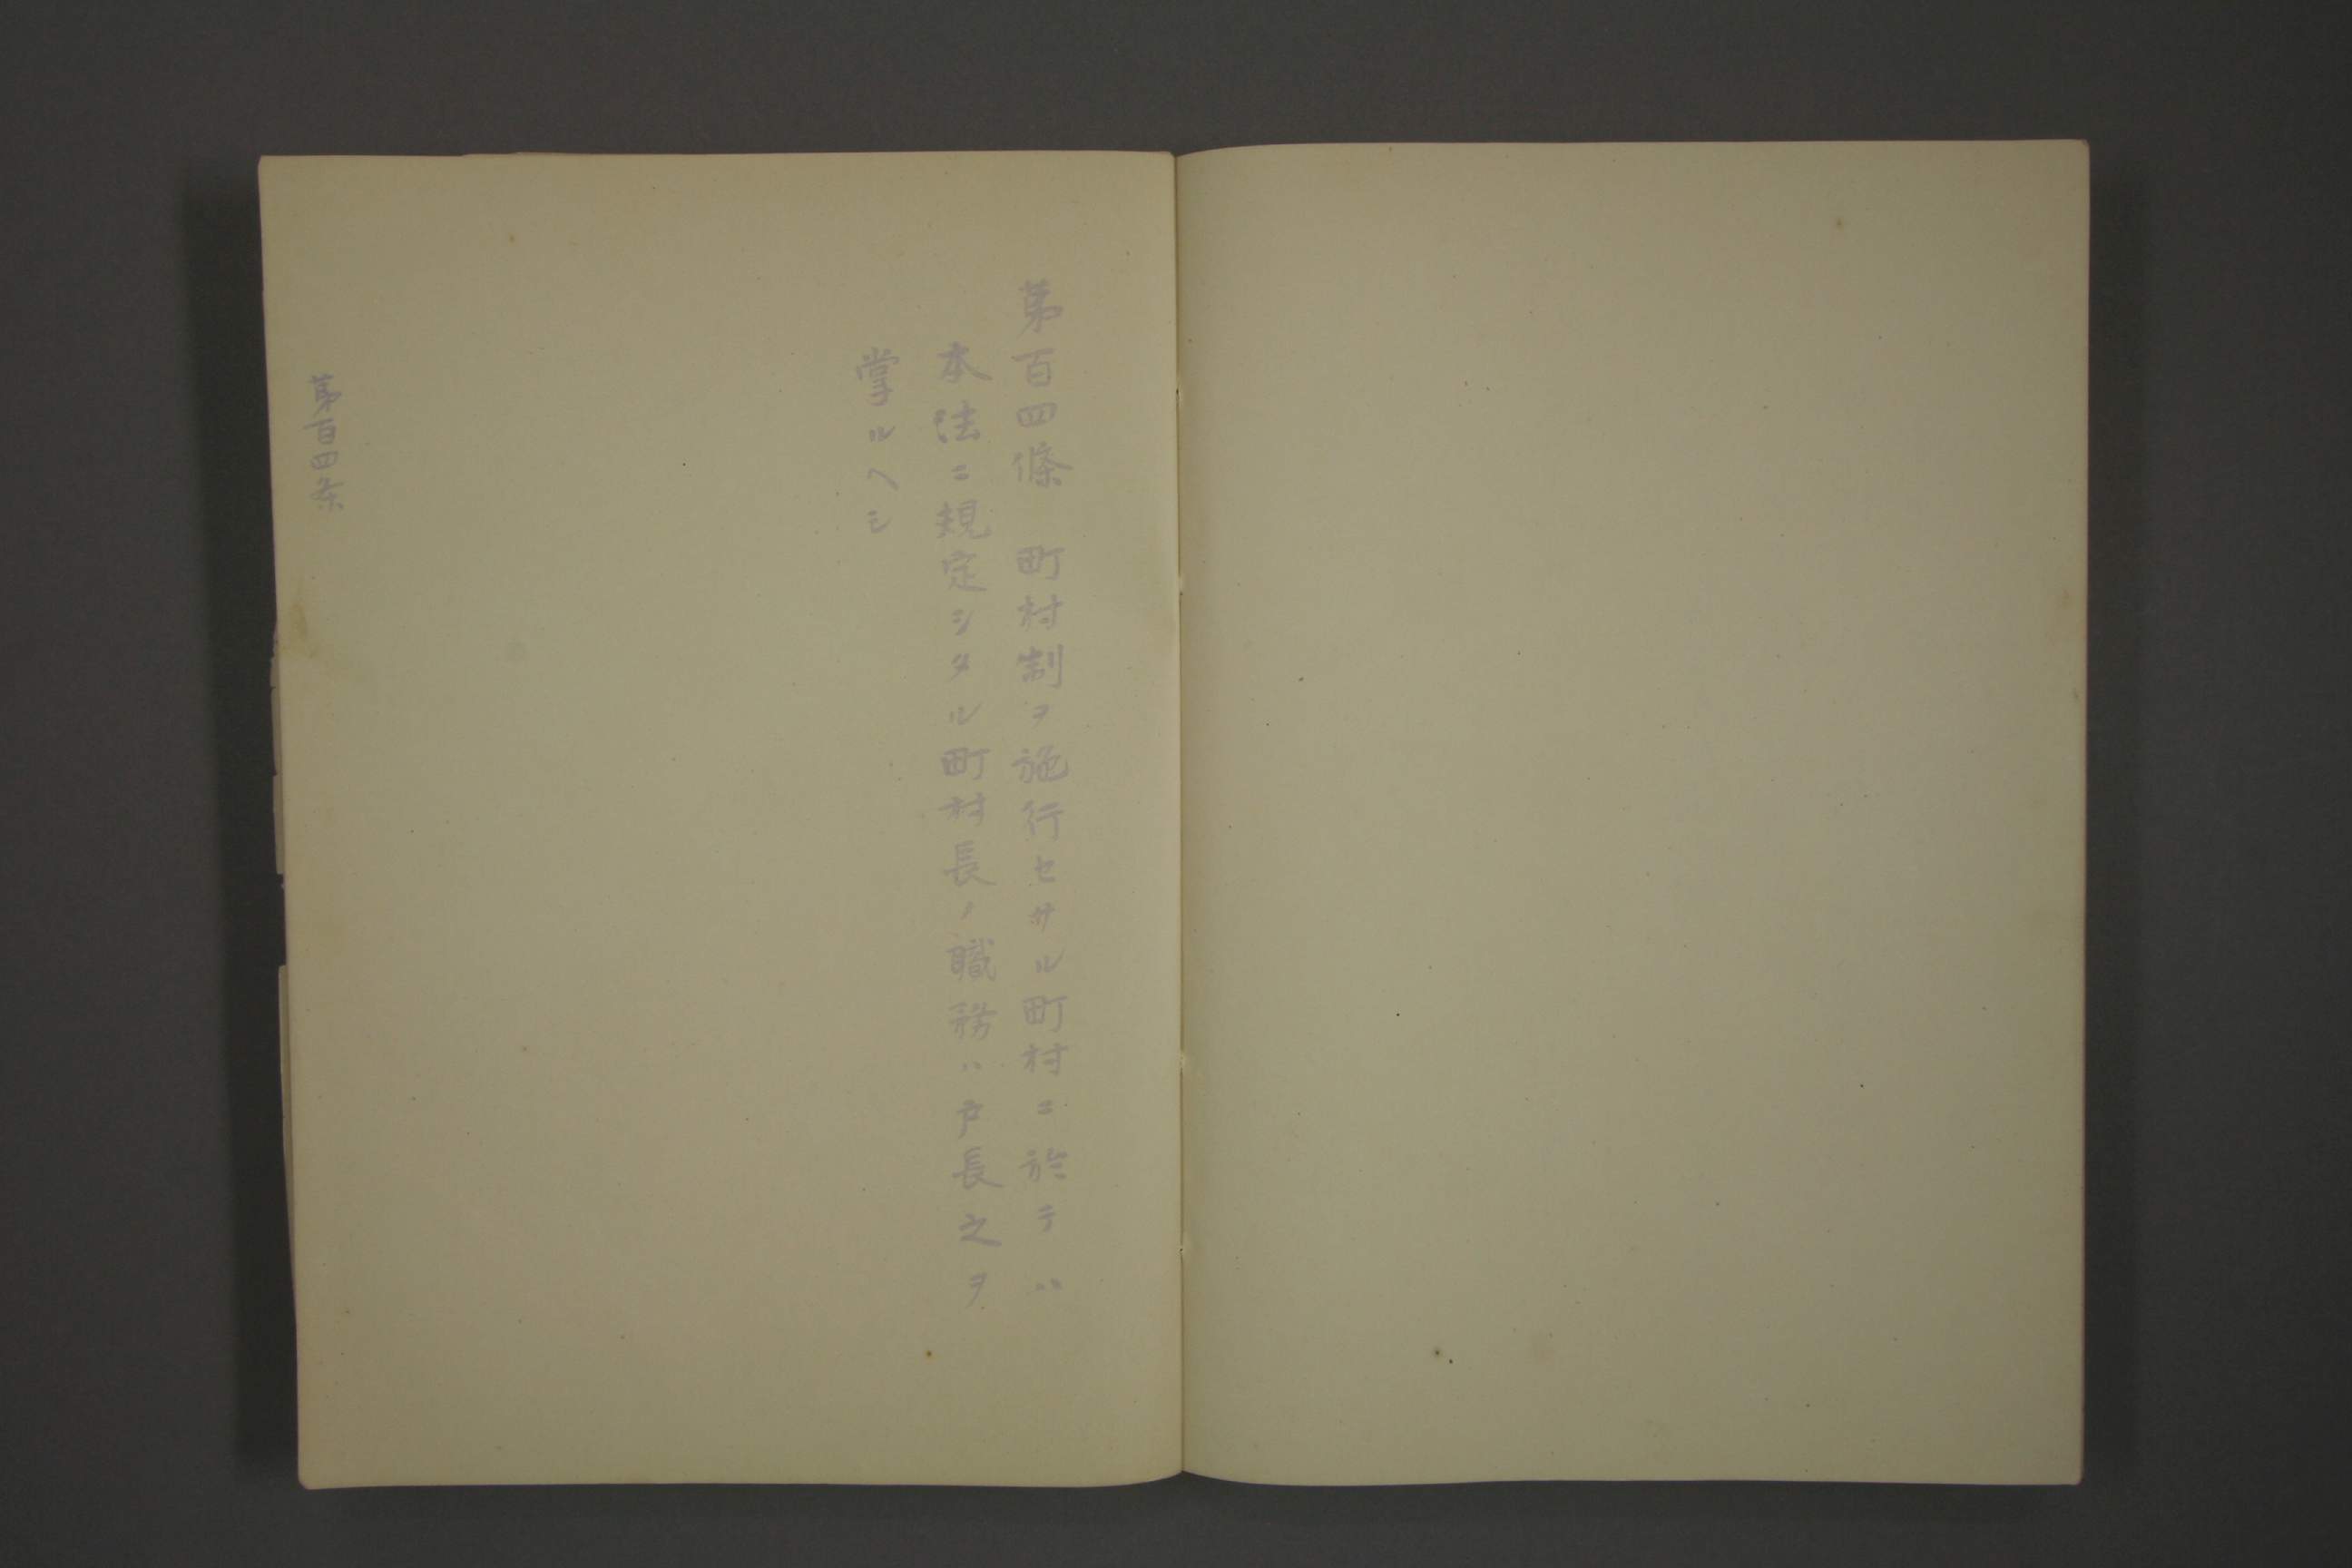 第百四條　町村制ヲ施行セサル町村ニ於テハ
本法ニ規定シタル町村長ノ職務ハ戸長之ヲ
掌ルヘシ
第百四条